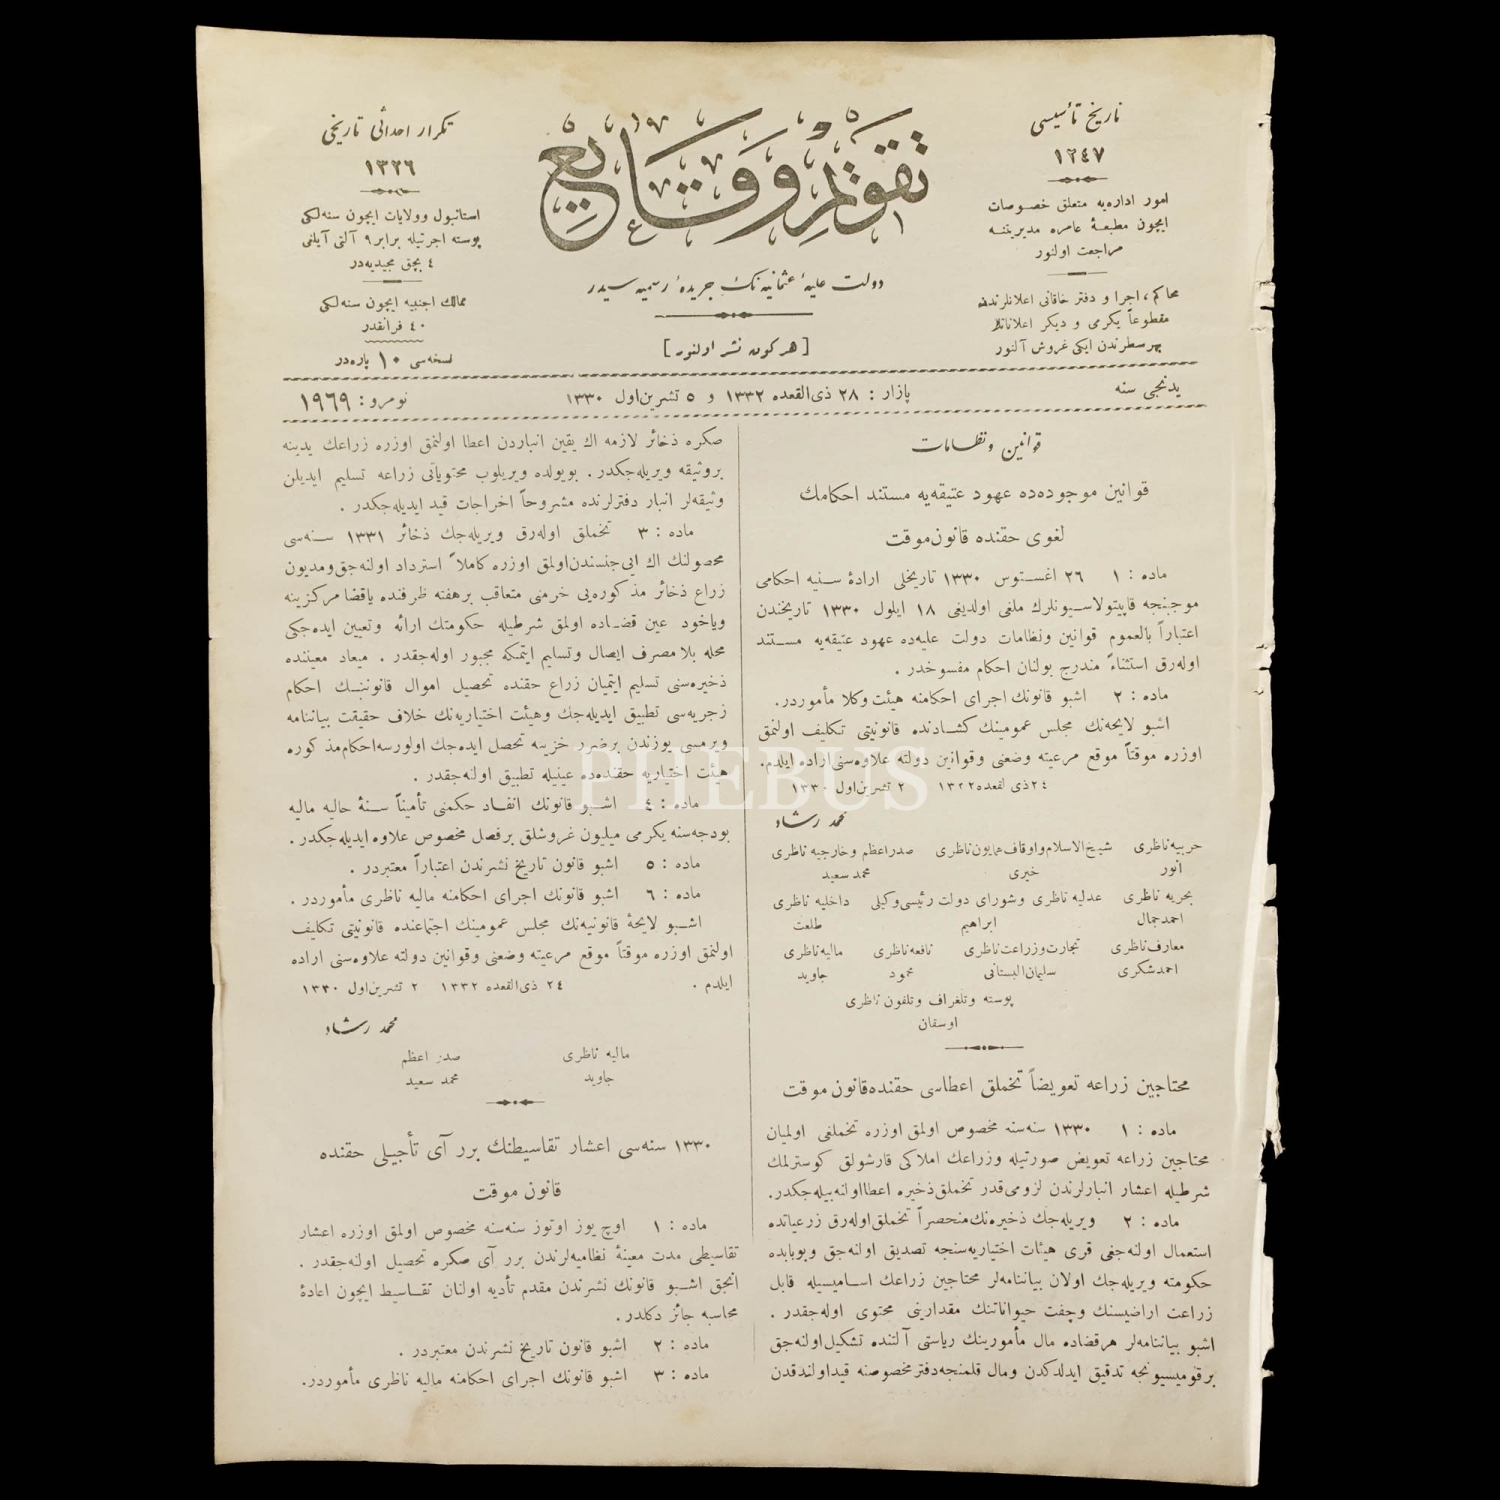 تاريخ تأسيسى
١٢٤٧
امور اداره‌يه متعلق خصوصات
ايچون مطبعهٔ عامره مديريتنه
مراجعت اولنور
محاكم، اجرا و دفتر خاقانى اعلانلرندن
مقطوعاً يكرمى و ديكر اعلاناتك
بهر سطرندن ايكى غروش آلنور
تقويم وقايع
دولت عليهٔ عثمانيه‌نك جريدهٔ رسميه سيدر
[هركون نشر اولنور]
تكرار احداثى تاريخى
١٣٢٦
استانبول وولايات ايچون سنه‌لكى
پوسته اجرتيله برابر ٩ آلتى آيلغى
٤ بچق مجيديه‌در
ممالك اجنبيه ايچون سنه‌لكى
٤٠ فرانقدر
نسخه‌سى ١٠ پاره‌در
يدنجى سنه
پازار : ٢٨ ذى‌القعده ١٣٣٢ و ٥ تشرين‌اول ١٣٣٠
نومرو : ١٩٦٩
قوانين ونظامات
قوانين موجوده‌ده عهود عتيقه‌يه مستند احكامك
لغوى حقنده قانون‌موقت
ماده : ١ ٢٦ اغستوس ١٣٣٠ تاريخلى ارادهٔ سنيه احكامى
موجبنجه قاپيتولاسيونلرك ملغى اولديغى ١٨ ايلول ١٣٣٠ تاريخندن
اعتباراً بالعموم قوانين ونظامات دولت عليه‌ده عهود عتيقه‌يه مستند
اوله‌رق استثناءً مندرج بولنان احكام مفسوخدر .
ماده : ٢ اشبو قانونك اجراى احكامنه هيئت وكلا مأموردر.
اشبو لايحه‌نك مجلس عمومينك كشادنده قانونيتى تكليف اولنمق
اوزره موقتاً موقع مرعيته وضعنى وقوانين دولته علاوه‌سنى اراده ايلدم.
٢٤ ذى القعده ١٣٣٢ ٢ تشرين‌اول ١٣٣٠
محمد رشاد
حربيه ناظرى شيخ‌الاسلام‌واوقاف‌همايون‌ناظرى صدراعظم وخارجيه ناظرى
انور خيرى محمد سعيد
بحريه ناظرى عدليه ناظرى وشوراى دولت رئيسى‌وكيلى داخليه ناظرى
احمدجمال ابراهيم طلعت
معارف‌ناظرى تجارت‌وزراعت‌ناظرى نافعه‌ناظرى ماليه‌ناظرى
احمدشكرى سليمان‌البستانى محمود جاويد
پوسته وتلغراف وتلفون ناظرى
اوسقان
محتاجين زراعه تعويضاً تخملق اعطاسى حقنده‌قانون موقت
ماده : ١ ١٣٣٠ سنه‌سنه مخصوص اولمق اوزره تخملغى اولميان
محتاجين زراعه تعويض صورتيله وزراعك املاكى قارشولق كوسترلمك
شرطيله اعشار انبارلرندن لزومى‌قدر تخملق‌ذخيره اعطااولنه‌بيله‌جكدر.
ماده : ٢ ويريله‌جك ذخيره‌نك‌منحصراً تخملق‌اوله‌رق زرعياتده
استعمال اولنه‌جغى قرى هيئات اختياريه‌سنجه تصديق اولنه‌جق وبوبابده
حكومته ويريله‌جك اولان بياننامه‌لر محتاجين زراعك اساميسيله قابل
زراعت اراضيسنك وچفت حيواناتنك مقدارينى محتوى اوله‌جقدر .
اشبو بياننامه‌لر هرقضاده مال مأمورينك رياستى آلتنده تشكيل‌اولنه‌جق
برقوميسيونجه تدقيق ايدلدكدن ومال قلمنجه‌دفتر مخصوصنه قيداولندقدن
صكره ذخائر لازمه اك يقين انباردن اعطا اولنمق اوزره زراعك يدينه
بروثيقه ويريله‌جكدر . بويولده ويريلوب محتوياتى زراعه تسليم ايديلن
وثيقه‌لر انبار دفترلرنده مشروحاً اخراجات قيد ايديله‌جكدر .
ماده : ٣ تخملق اوله‌رق ويريله‌جك ذخائر ١٣٣١ سنه‌سى
محصولنك اك ايى‌جنسندن‌اولمق اوزره كاملاً استرداد اولنه‌جق‌ومديون
زراع ذخائر مذكوره‌يى خرمنى متعاقب برهفته ظرفنده ياقضا مركزينه
وياخود عين قضاده اولمق شرطيله حكومتك ارائه وتعيين ايده‌جكى
محله بلا مصرف ايصال وتسليم ايتمكه مجبور اوله‌جقدر . ميعاد معيننده
ذخيره‌سنى تسليم ايتميان زراع حقنده تحصيل اموال قانوننك احكام
زجريه‌سى تطبيق ايديله‌جك وهيئت اختياريه‌نك خلاف حقيقت بياننامه
ويرمسى يوزندن برضرر خزينه تحصل ايده‌جك اولورسه‌احكام‌مذكوره
هيئت اختياريه حقنده‌ده عينيله تطبيق اولنه‌جقدر .
ماده : ٤ اشبو قانونك انفاد حكمنى تأميناً سنهٔ حاليه ماليه
بودجه‌سنه يكرمى ميليون غروشلق برفصل مخصوص علاوه ايديله‌جكدر.
ماده : ٥ اشبو قانون تاريخ نشرندن اعتباراً معتبردر .
ماده : ٦ اشبو قانونك اجراى احكامنه ماليه ناظرى مأموردر .
اشبو لايحهٔ قانونيه‌نك مجلس عمومينك اجتماعنده قانونيتى تكليف
اولنمق اوزره موقتاً موقع مرعيته وضعنى وقوانين دولته علاوه‌سنى اراده
ايلدم . ٢٤ ذى‌القعده ١٣٣٢ ٢ تشرين‌اول ١٣٣٠
محمد رشاد
ماليه ناظرى صدر اعظم
جاويد محمد سعيد
١٣٣٠ سنه‌سى اعشار تقاسيطنك برر آى تأجيلى حقنده
قانون موقت
ماده : ١ اوچ يوز اوتوز سنه‌سنه مخصوص اولمق اوزره اعشار
تقاسيطى مدت معينهٔ نظاميه‌لرندن برر آى صكره تحصيل اولنه‌جقدر .
انجق اشبو قانونك نشرندن مقدم تأديه اولنان تقاسيط ايچون اعادهٔ
محاسبه جائز دكلدر.
ماده : ٢ اشبو قانون تاريخ نشرندن معتبردر .
ماده : ٣ اشبو قانونك اجراى احكامنه ماليه ناظرى مأموردر.
PHEBUS